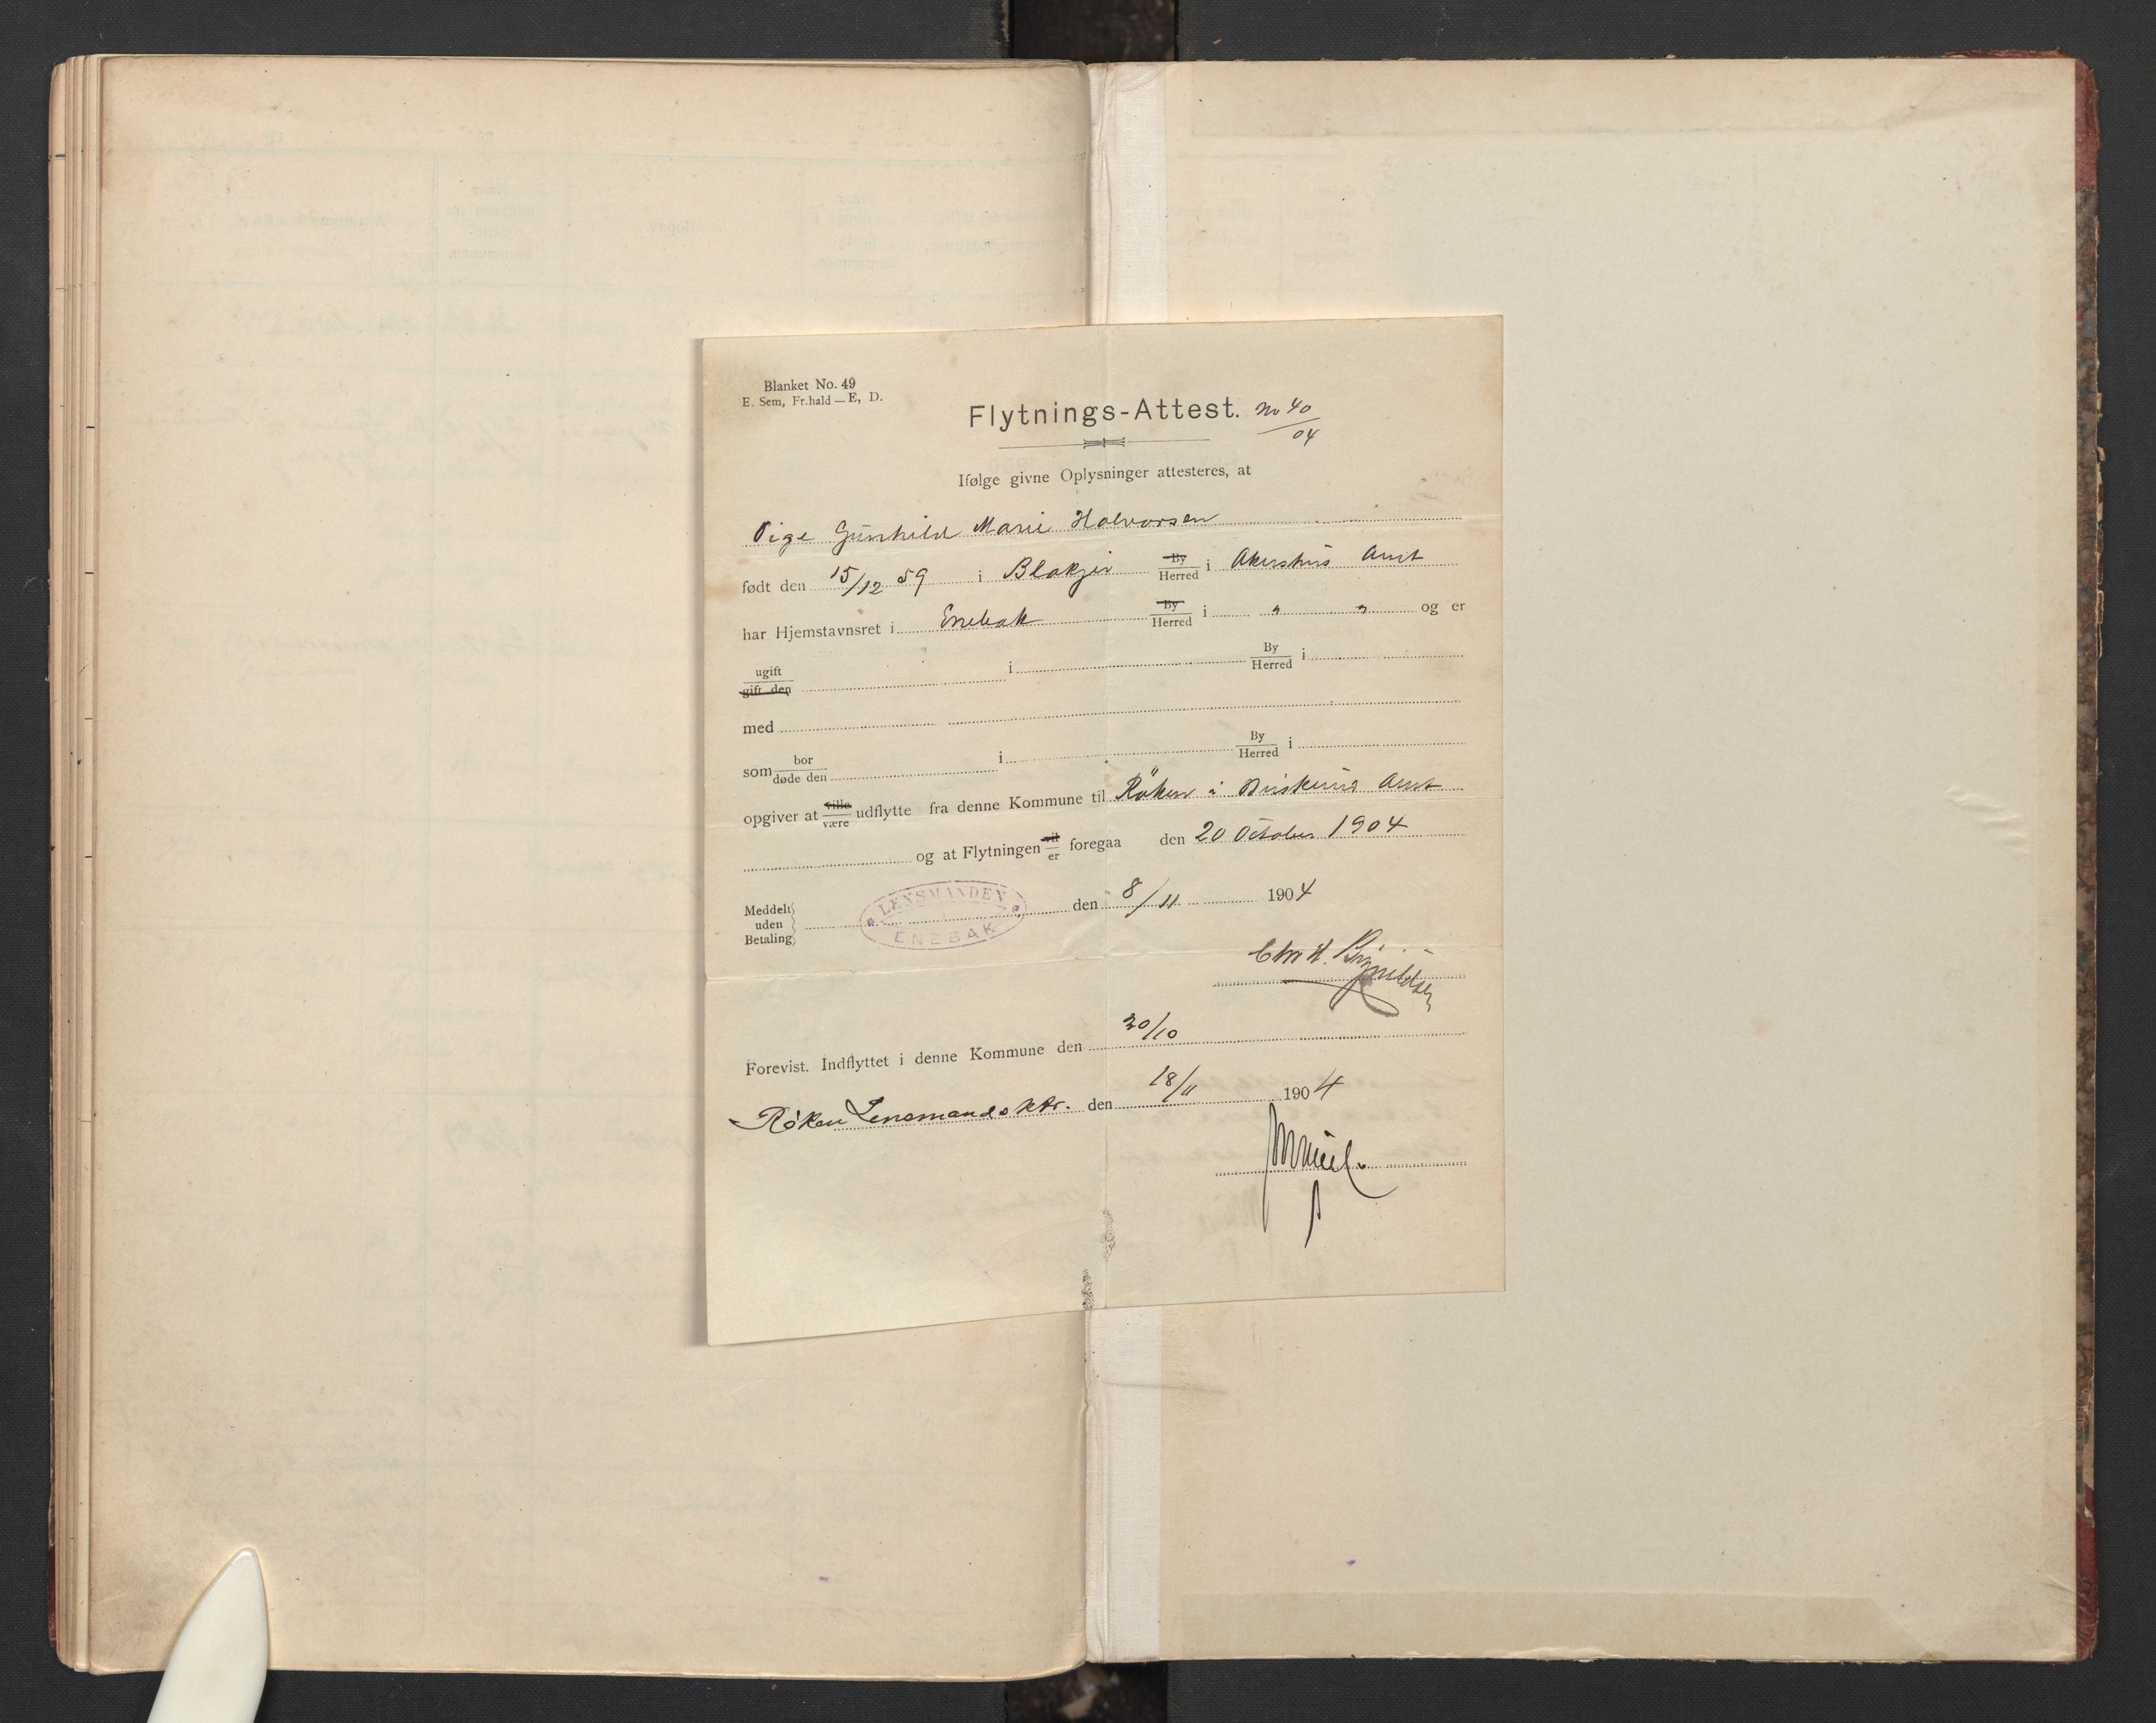 Blanket No. 49
E. Sem, Fr.hald — E, D.
Flytnings-Attest. No 40/04
Ifølge givne Oplysninger attesteres, at
Pige Gunhild Marie Halvorsen
født den 15/12 59 i Blakjer By Herred i Akershus Amt
har Hjemstavnsret i Enebak By Herred i " " og er
ugift gift den i By Herred i
med
som bor døde den i By Herred i
opgiver at ville være udflytte fra denne Kommune til Röken i Buskerud Amt
og at Flytningen vil er foregaa den 20 October 1904
Meddelt uden Betaling LENSMANDEN ENEBAK den 8/11 1904
Chr. H.
Forevist. Indflyttet i denne Kommune den 20/10
Røken Lensmandsktr. den 18/11 1904